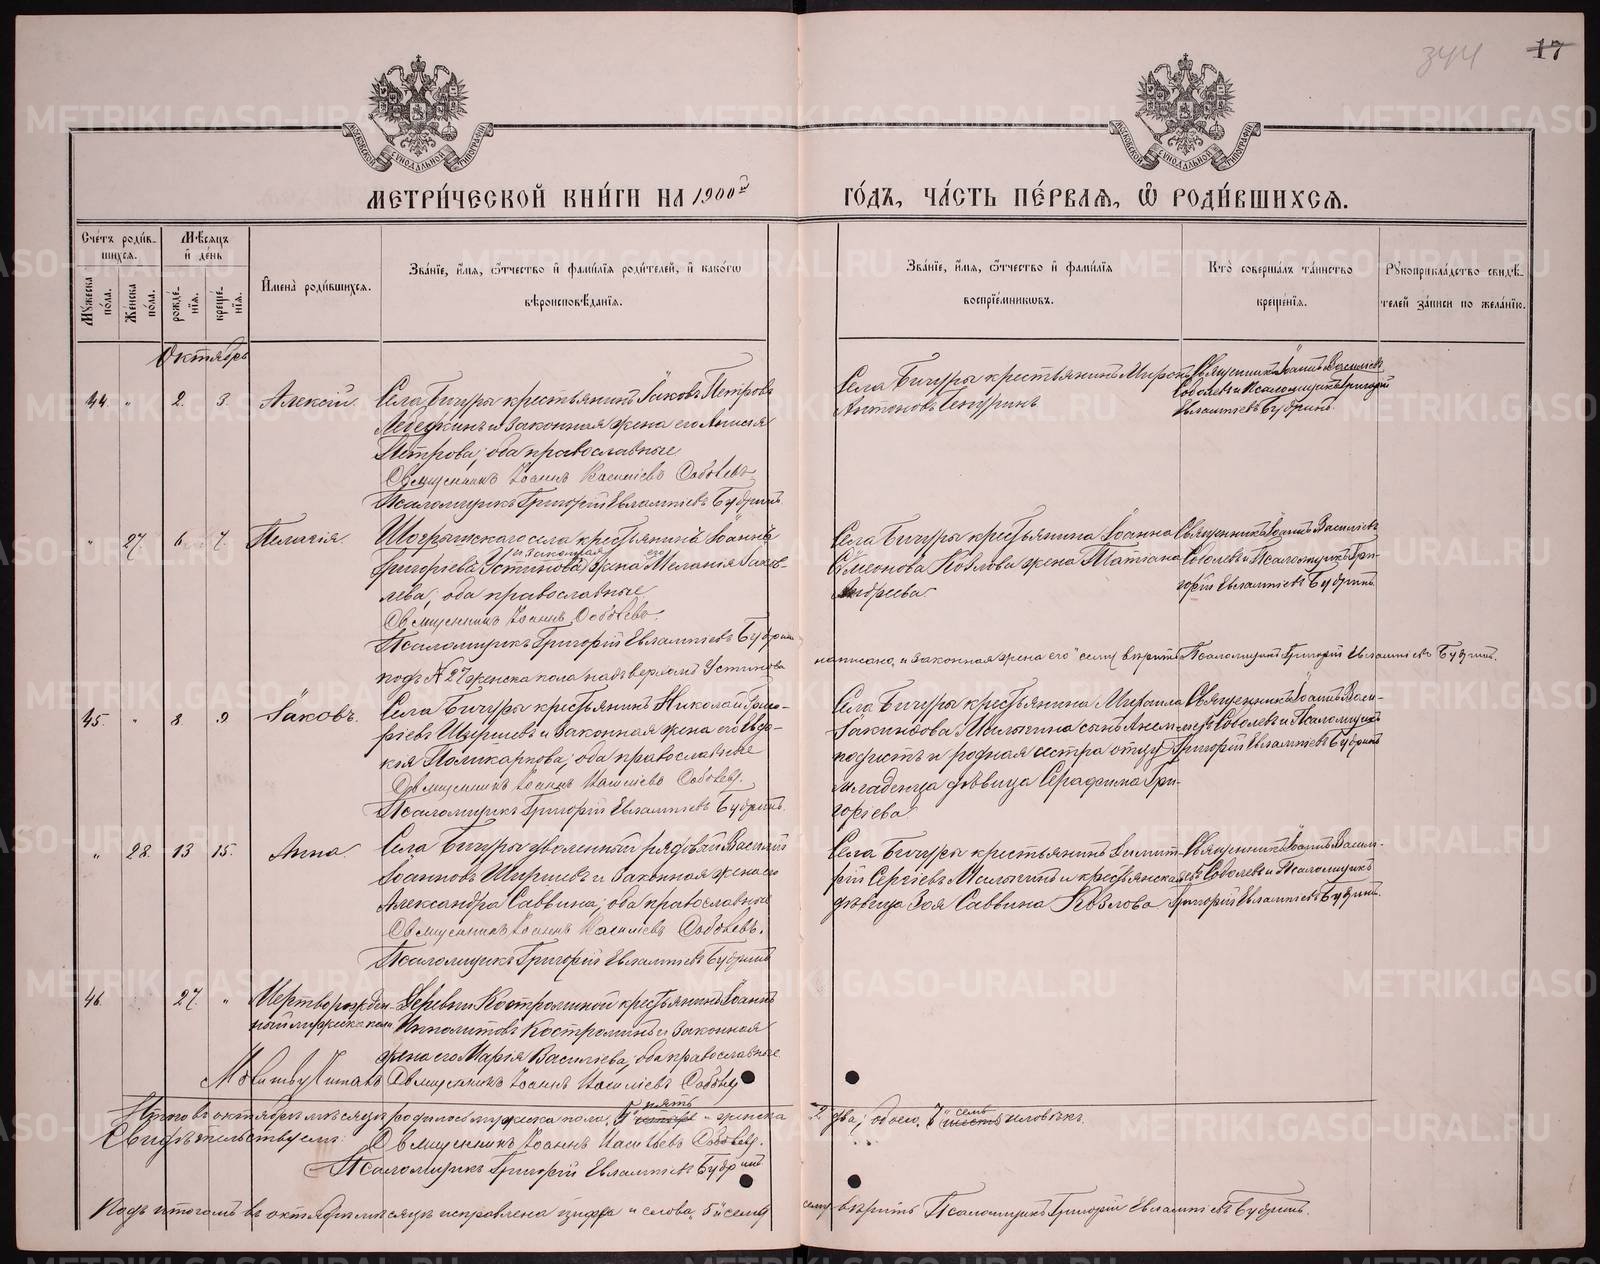 344 17
МЕТРИ́ЧЕСКОЙ КНИ́ГИ НА 1900й ГО́ДЪ, ЧА́СТЬ ПЕ́РВАѦ, Ѡ҆ РОДИ́ВШИХСѦ.
Сче́тъ роди́вшихсѧ.
Мꙋ́жеска по́ла.
Же́нска по́ла.
Мѣ́сѧцъ и҆ де́нь
рожде́нїѧ.
креще́нїѧ.
И҆мена̀ роди́вшихсѧ.
Зва́нїе, и҆́мѧ, ѻ҆́тчество и҆ фами́лїѧ роди́телей, и҆ како́гѡ
вѣроисповѣ́данїѧ.
Зва́нїе, и҆́мѧ, ѻ҆́тчество и҆ фами́лїѧ
воспрїе́мникѡвъ.
Кто̀ соверша́лъ та́инство
креще́нїѧ.
Рꙋкоприкла́дство свидѣ́телей за́писи по жела́нїю.
Октябрь
44. „ 2. 3. Алексій.
Села Бичуры крестьянинъ Іаковъ Петровъ
Лебедкинъ и законная жена его Анисія
Петрова; оба православные
Священникъ Іоаннъ Василіевъ Соболевъ
Псаломщикъ Григорій Евлампіевъ Будринъ
Села Бичуры крестьянинъ
Антоновъ
Священникъ Іоаннъ Василіевъ
Соболевъ и Псаломщикъ Григорій
Евлампіевъ Будринъ.
„ 27 6 7. Пелагія.
села крестьянинъ Іоаннъ
Григорьевъ Устиновъ и законная его жена Меланія Іаков-
лева; оба православные
Священникъ Іоаннъ Соболевъ
Псаломщикъ Григорій Евлампіевъ Будринъ
подъ № 27 женска пола надъ верхомъ Устинова
написано „и законная жена его“ сему вѣритъ Псаломщикъ Григорій Евлампіевъ Будринъ.
Села Бичуры крестьянина Іоанна
Симеонова Козлова жена Татіана
Андреева.
Священникъ Іоаннъ Василіевъ
Соболевъ и Псаломщикъ Гри-
горій Евлампіевъ Будринъ.
45. „ 8 9 Іаковъ.
Села Бичуры крестьянинъ Николай Григо-
ріевъ Шыршевъ и законная жена его Евдо-
кія Поликарпова; оба православные
Священникъ Іоаннъ Василіевъ Соболевъ.
Псаломщикъ Григорій Евлампіевъ Будринъ.
Села Бичуры крестьянина Михаила
Іакинфова Малыгина сынъ Анем-
подистъ и родная сестра отцу
младенца дѣвица Серафима Гри-
горіева
Священникъ Іоаннъ Васи-
левъ Соболевъ и Псаломщикъ
Григорій Евлампіевъ Будринъ
„ 28. 13 15. Анна.
Села Бичуры уволенный рядовой Василій
Іоанновъ Ширшевъ и законная жена его
Александра Саввина; оба православные
Священникъ Іоаннъ Василіевъ Соболевъ.
Псаломщикъ Григорій Евлампіевъ Будринъ
Села Бичуры крестьянинъ Димит-
рій Сергіевъ Малыгинъ и крестьянская
дѣвица Зоя Саввина Козлова
Священникъ Іоаннъ Васили-
евъ Соболевъ и Псаломщикъ
Григорій Евлампіевъ Будринъ.
46. 27 „ Мертворожден-
ный мужска пола
Деревни Костроминой крестьянинъ Іоаннъ
Ипполитовъ Костроминъ и законная
жена его Марія Василіева; оба православные
Молитву читалъ Священникъ Іоаннъ Василіевъ Соболевъ
Итого въ октябрѣ мѣсяцѣ родилось мужска пола 5 пять „ женска 2 два; обоего 7 семь человѣкъ.
Свидѣтельствуемъ: Священникъ Іоаннъ Василіевъ Соболевъ.
Псаломщикъ Григорій Евлампіевъ Будринъ
Подъ итогомъ въ октябрѣ мѣсяцѣ исправлена цифра и слова „5“ и семь сему вѣритъ Псаломщикъ Григорій Евлампіевъ Будринъ.
METRIKI.GASO-URAL.RU